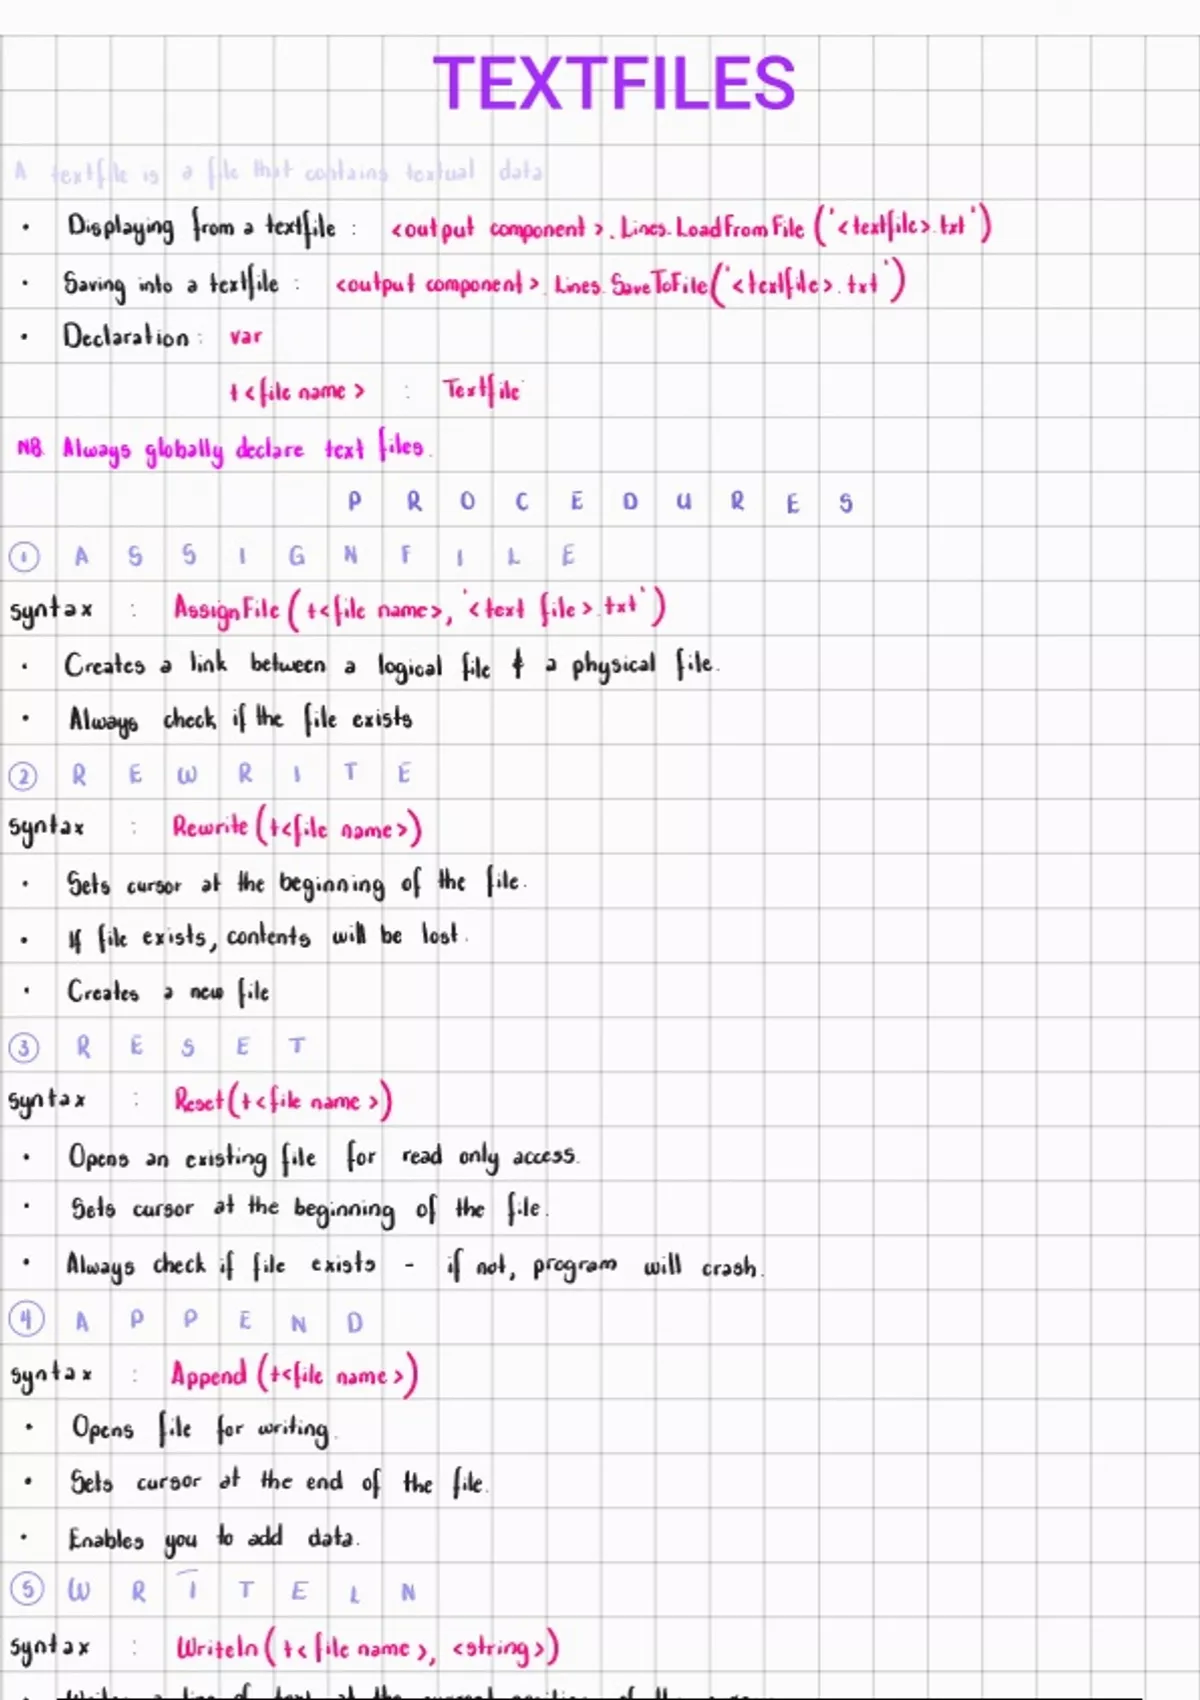 TEXTFILES
A textfile is a file that contains textual data
• Displaying from a textfile : <output component>.Lines.LoadFromFile('<textfile>.txt')
• Saving into a textfile : <output component>.Lines.SaveToFile('<textfile>.txt')
• Declaration: var
t<file name> : Textfile
NB. Always globally declare text files.
PROCEDURES
① ASSIGNFILE
syntax : AssignFile(t<file name>, '<text file>.txt')
• Creates a link between a logical file & a physical file.
• Always check if the file exists
② REWRITE
syntax : Rewrite(t<file name>)
• Sets cursor at the beginning of the file.
• If file exists, contents will be lost.
• Creates a new file
③ RESET
syntax : Reset(t<file name>)
• Opens an existing file for read only access.
• Sets cursor at the beginning of the file.
• Always check if file exists - if not, program will crash.
④ APPEND
syntax : Append(t<file name>)
• Opens file for writing.
• Sets cursor at the end of the file.
• Enables you to add data.
⑤ WRITELN
syntax : Writeln(t<file name>, <string>)
• Writes a line of text at the current position of the